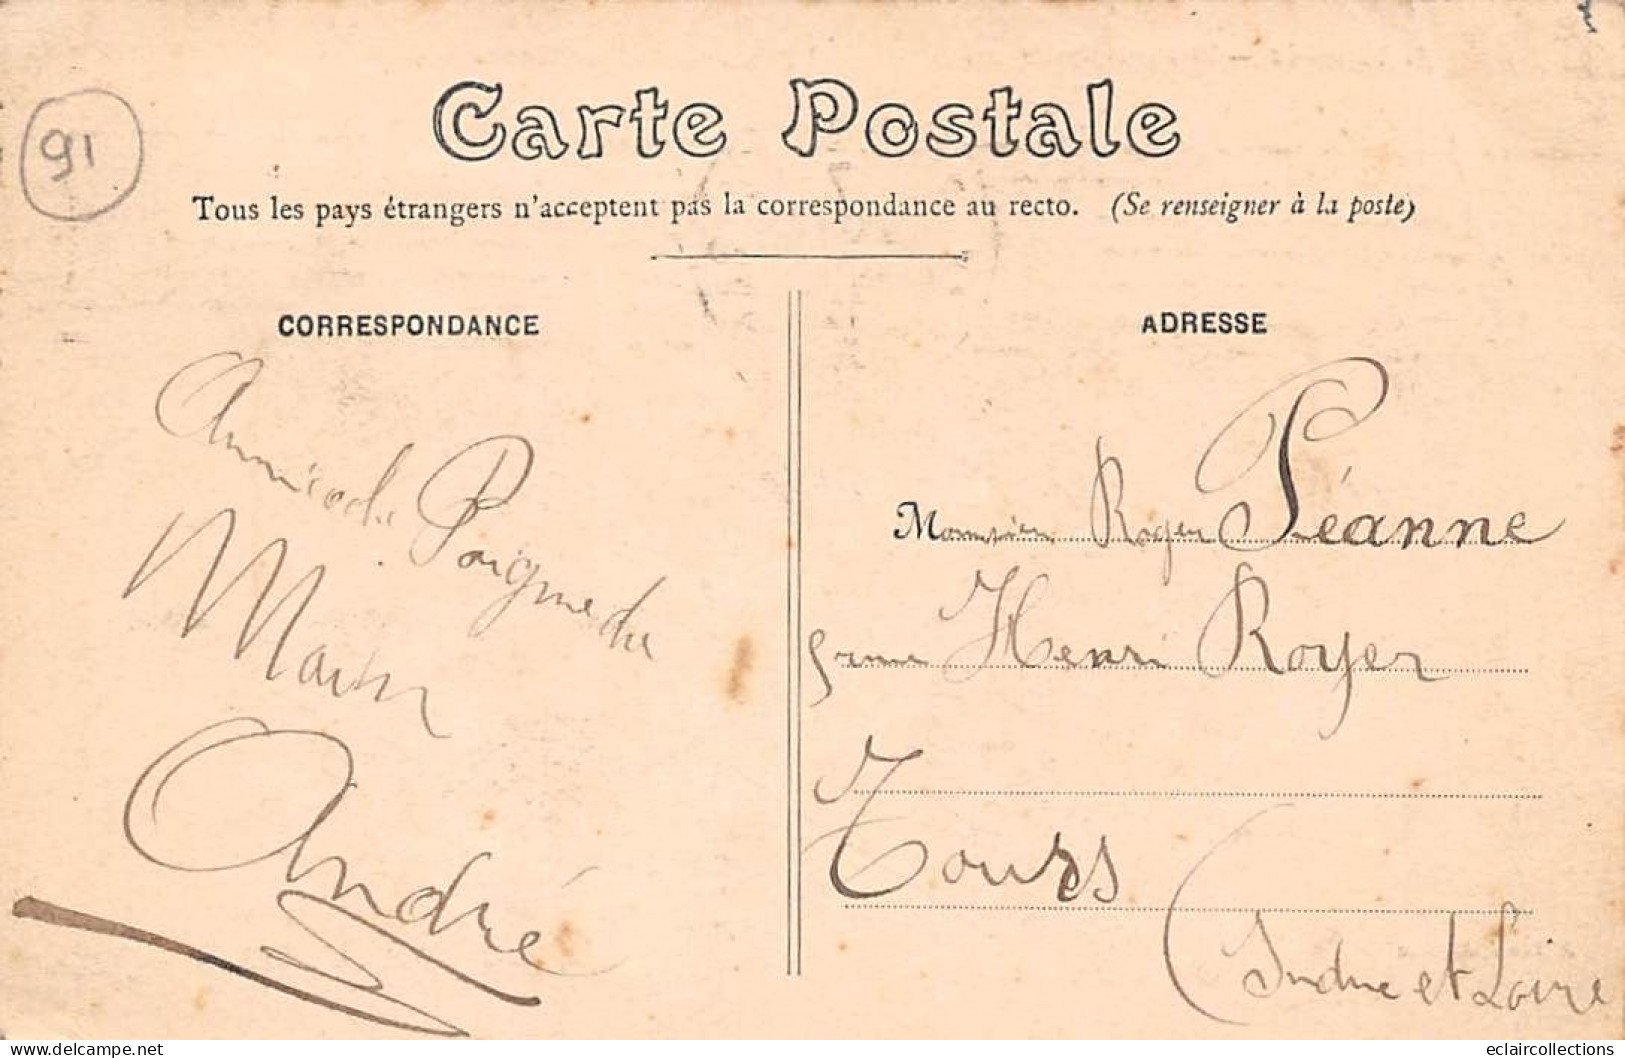 91
Carte Postale
Tous les pays étrangers n'acceptent pas la correspondance au recto. (Se renseigner à la poste)
CORRESPONDANCE
Poignée de
Main
André
ADRESSE
Monsieur Roger Péanne
Henri Royer
Tours
(Indre et Loire
eclaircollections